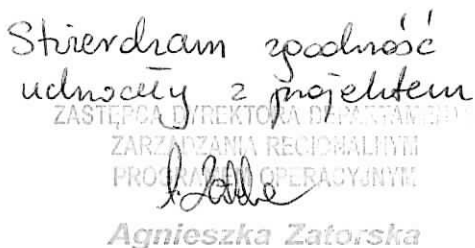 Stwierdzam zgodność
uchwały z projektem
ZASTĘPCA DYREKTORA DEPARTAMENTU
ZARZĄDZANIA REGIONALNYM
PROGRAMEM OPERACYJNYM
Agnieszka Zatorska